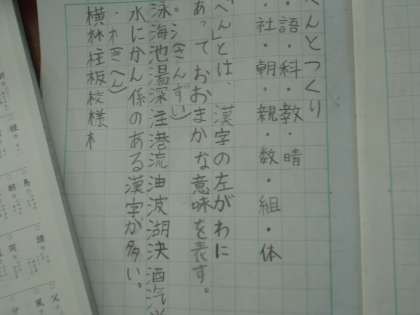 へんとつくり
・語・科・教・晴
・社・朝・親・数・組・体
へん」とは、漢字の左がわに
あって おおまかな意味を表す。
・氵(さんずい)
泳海池湯深注港流油波湖決酒汽
水にかん係のある漢字が多い。
・木(きへん)
横林柱板校様